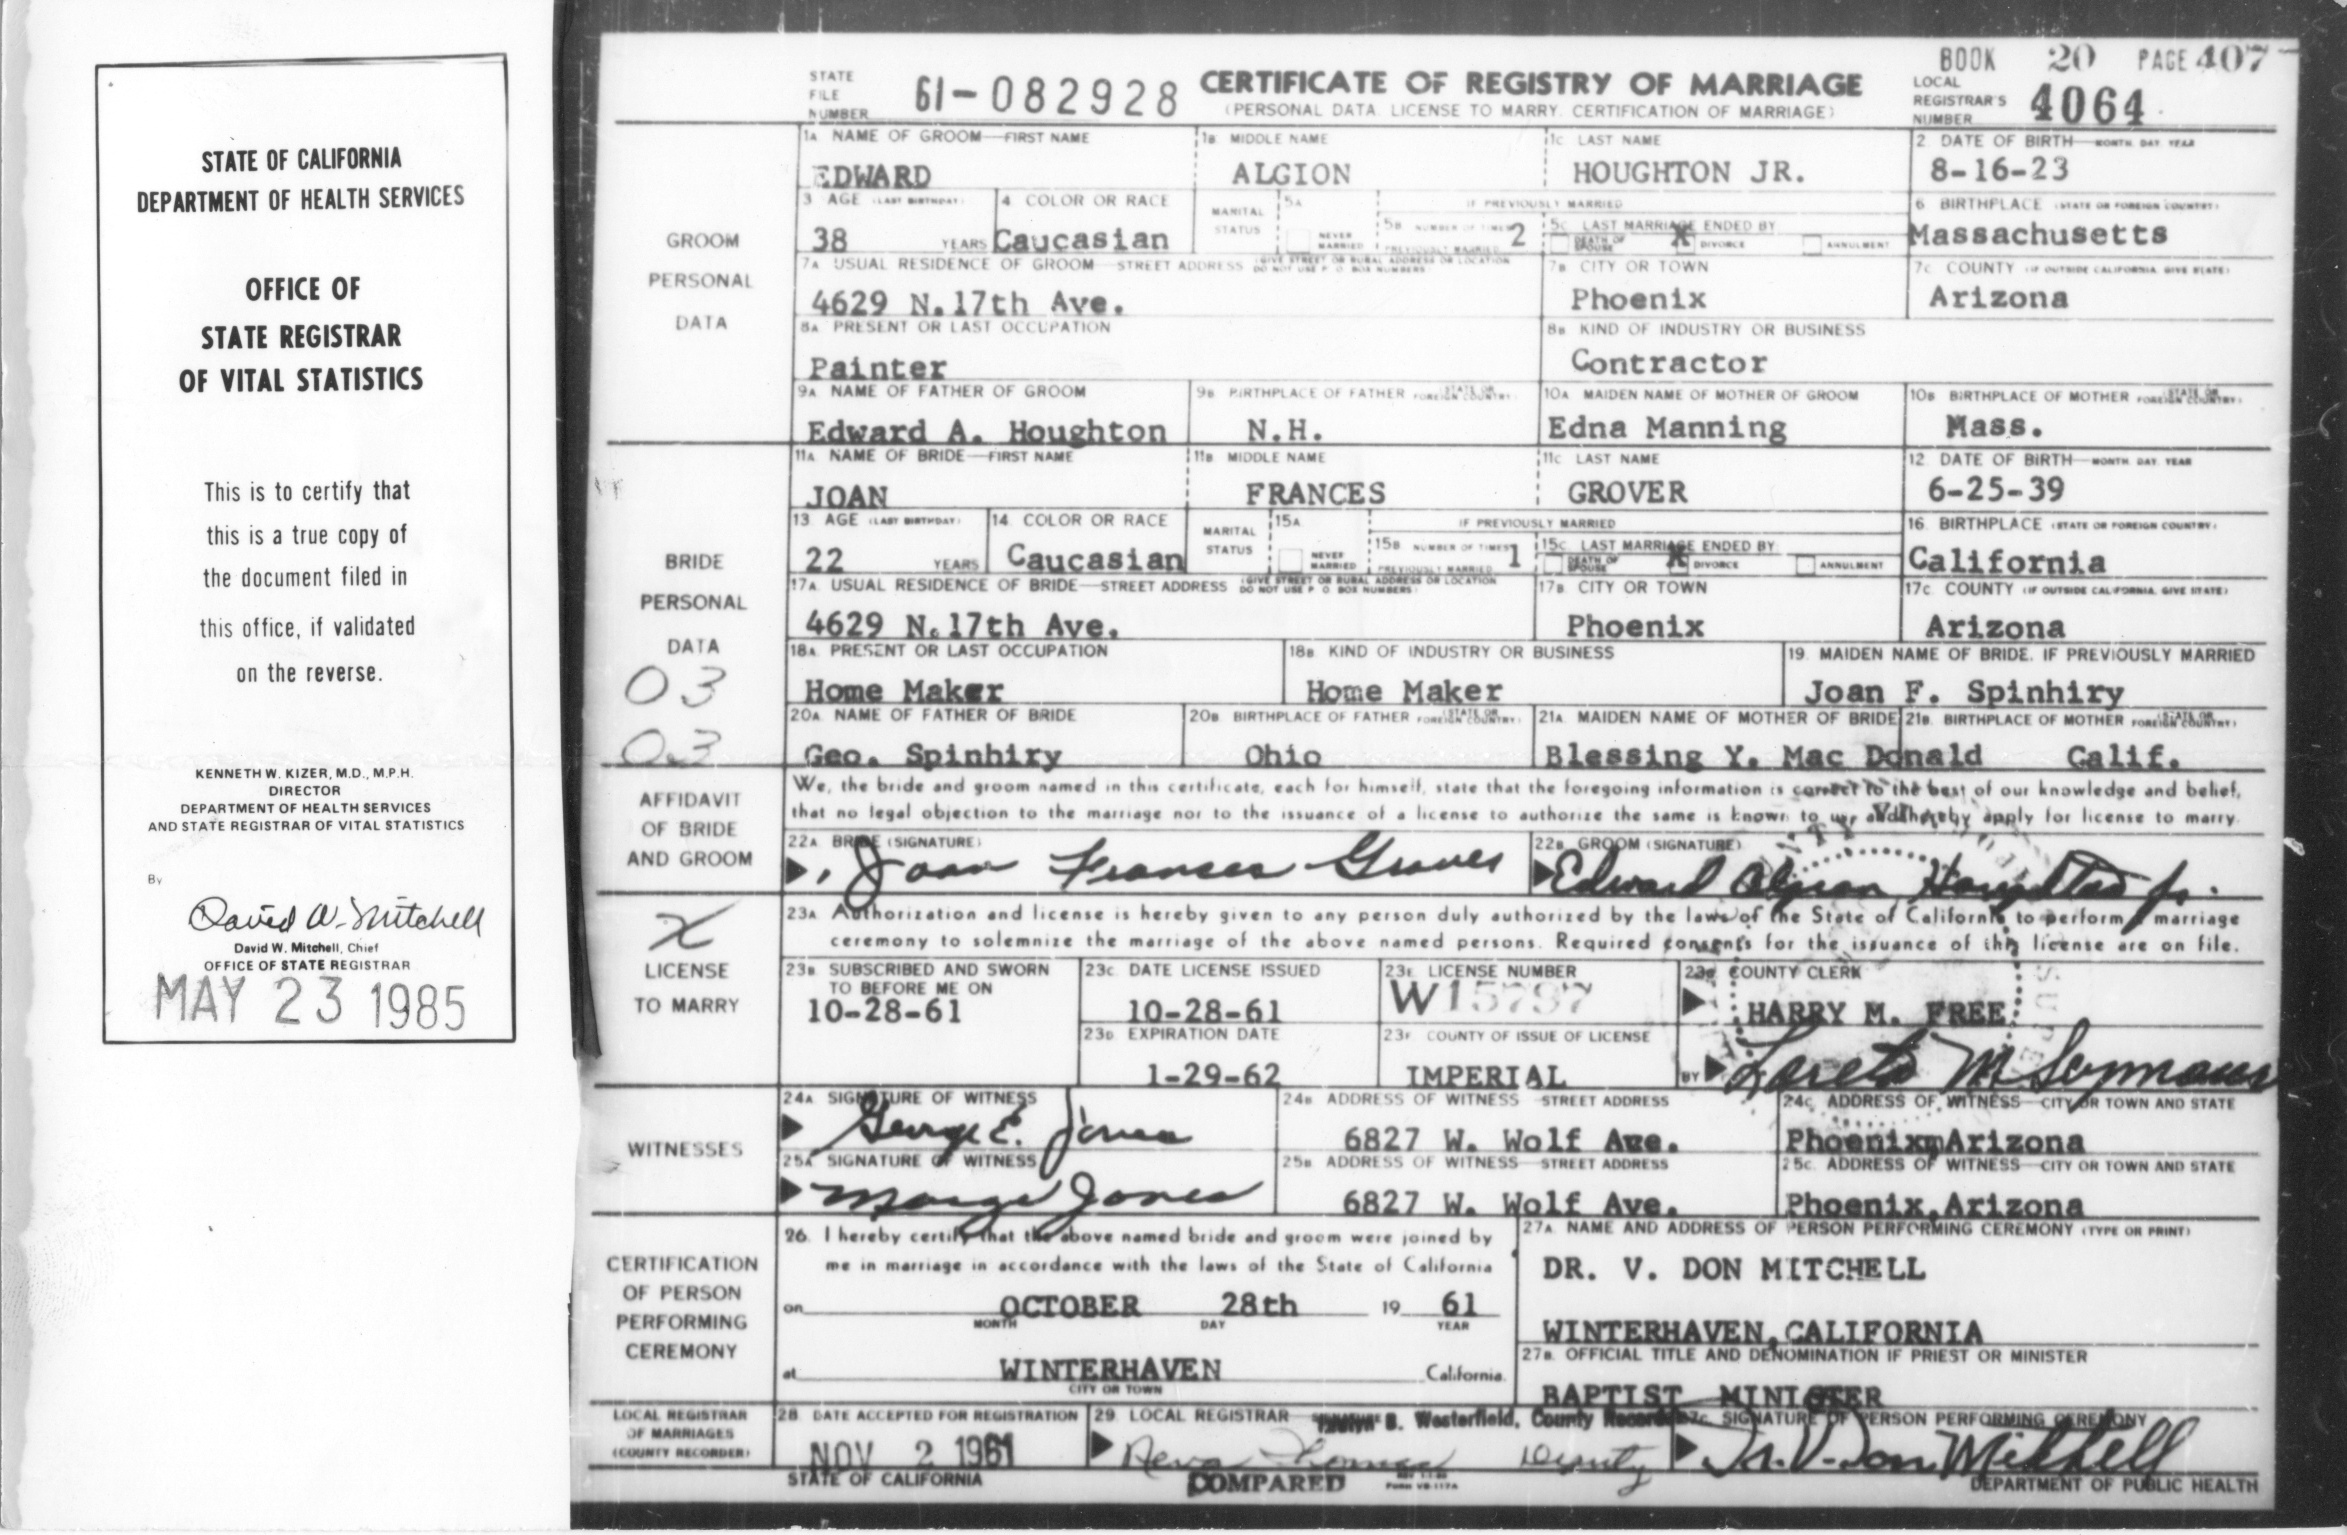 STATE OF CALIFORNIA
DEPARTMENT OF HEALTH SERVICES
OFFICE OF
STATE REGISTRAR
OF VITAL STATISTICS
This is to certify that
this is a true copy of
the document filed in
this office, if validated
on the reverse.
KENNETH W. KIZER, M.D., M.P.H.
DIRECTOR
DEPARTMENT OF HEALTH SERVICES
AND STATE REGISTRAR OF VITAL STATISTICS
By
David W. Mitchell
David W. Mitchell, Chief
OFFICE OF STATE REGISTRAR
MAY 23 1985
BOOK 20 PAGE 407
STATE FILE NUMBER 61-082928 CERTIFICATE OF REGISTRY OF MARRIAGE LOCAL REGISTRAR'S NUMBER 4064
(PERSONAL DATA. LICENSE TO MARRY. CERTIFICATION OF MARRIAGE)
GROOM PERSONAL DATA
1A NAME OF GROOM—FIRST NAME 1B MIDDLE NAME 1C LAST NAME 2. DATE OF BIRTH—MONTH, DAY, YEAR
EDWARD ALGION HOUGHTON JR. 8-16-23
3 AGE (LAST BIRTHDAY) 4 COLOR OR RACE MARITAL STATUS 5A IF PREVIOUSLY MARRIED 6 BIRTHPLACE (STATE OR FOREIGN COUNTRY)
NEVER MARRIED 5B NUMBER OF TIMES PREVIOUSLY MARRIED 5C LAST MARRIAGE ENDED BY DEATH OF SPOUSE DIVORCE ANNULMENT
38 YEARS Caucasian 2 X Massachusetts
7A USUAL RESIDENCE OF GROOM—STREET ADDRESS (GIVE STREET OR RURAL ADDRESS OR LOCATION DO NOT USE P. O. BOX NUMBERS) 7B CITY OR TOWN 7C COUNTY (IF OUTSIDE CALIFORNIA, GIVE STATE)
4629 N. 17th Ave. Phoenix Arizona
8A PRESENT OR LAST OCCUPATION 8B KIND OF INDUSTRY OR BUSINESS
Painter Contractor
9A NAME OF FATHER OF GROOM 9B BIRTHPLACE OF FATHER (STATE OR FOREIGN COUNTRY) 10A MAIDEN NAME OF MOTHER OF GROOM 10B BIRTHPLACE OF MOTHER (STATE OR FOREIGN COUNTRY)
Edward A. Houghton N.H. Edna Manning Mass.
BRIDE PERSONAL DATA
11A NAME OF BRIDE—FIRST NAME 11B MIDDLE NAME 11C LAST NAME 12. DATE OF BIRTH—MONTH, DAY, YEAR
JOAN FRANCES GROVER 6-25-39
13 AGE (LAST BIRTHDAY) 14 COLOR OR RACE MARITAL STATUS 15A IF PREVIOUSLY MARRIED 16. BIRTHPLACE (STATE OR FOREIGN COUNTRY)
NEVER MARRIED 15B NUMBER OF TIMES PREVIOUSLY MARRIED 15C LAST MARRIAGE ENDED BY DEATH OF SPOUSE DIVORCE ANNULMENT
22 YEARS Caucasian 1 X California
17A USUAL RESIDENCE OF BRIDE—STREET ADDRESS (GIVE STREET OR RURAL ADDRESS OR LOCATION DO NOT USE P. O. BOX NUMBERS) 17B CITY OR TOWN 17C COUNTY (IF OUTSIDE CALIFORNIA, GIVE STATE)
4629 N. 17th Ave. Phoenix Arizona
18A PRESENT OR LAST OCCUPATION 18B KIND OF INDUSTRY OR BUSINESS 19. MAIDEN NAME OF BRIDE, IF PREVIOUSLY MARRIED
03 Home Maker Home Maker Joan F. Spinhiry
20A NAME OF FATHER OF BRIDE 20B BIRTHPLACE OF FATHER (STATE OR FOREIGN COUNTRY) 21A MAIDEN NAME OF MOTHER OF BRIDE 21B BIRTHPLACE OF MOTHER (STATE OR FOREIGN COUNTRY)
03 Geo. Spinhiry Ohio Blessing Y. Mac Donald Calif.
AFFIDAVIT OF BRIDE AND GROOM
We, the bride and groom named in this certificate, each for himself, state that the foregoing information is correct to the best of our knowledge and belief,
that no legal objection to the marriage nor to the issuance of a license to authorize the same is known to us, and hereby apply for license to marry.
22A BRIDE (SIGNATURE) 22B GROOM (SIGNATURE)
Joan Frances Grover Edward Algion Houghton Jr.
X
LICENSE TO MARRY
23A Authorization and license is hereby given to any person duly authorized by the laws of the State of California to perform a marriage
ceremony to solemnize the marriage of the above named persons. Required consents for the issuance of this license are on file.
23B SUBSCRIBED AND SWORN TO BEFORE ME ON 23C DATE LICENSE ISSUED 23E LICENSE NUMBER 23G COUNTY CLERK
10-28-61 10-28-61 W15797 HARRY M. FREE
23D EXPIRATION DATE 23F COUNTY OF ISSUE OF LICENSE
1-29-62 IMPERIAL BY
WITNESSES
24A SIGNATURE OF WITNESS 24B ADDRESS OF WITNESS—STREET ADDRESS 24C ADDRESS OF WITNESS—CITY OR TOWN AND STATE
George E. Jones 6827 W. Wolf Ave. Phoenix, Arizona
25A SIGNATURE OF WITNESS 25B ADDRESS OF WITNESS—STREET ADDRESS 25C ADDRESS OF WITNESS—CITY OR TOWN AND STATE
Marge Jones 6827 W. Wolf Ave. Phoenix, Arizona
CERTIFICATION OF PERSON PERFORMING CEREMONY
26. I hereby certify that the above named bride and groom were joined by
me in marriage in accordance with the laws of the State of California
on OCTOBER 28th 19 61
MONTH DAY YEAR
at WINTERHAVEN California.
CITY OR TOWN
27A NAME AND ADDRESS OF PERSON PERFORMING CEREMONY (TYPE OR PRINT)
DR. V. DON MITCHELL
WINTERHAVEN, CALIFORNIA
27B. OFFICIAL TITLE AND DENOMINATION IF PRIEST OR MINISTER
BAPTIST MINISTER
LOCAL REGISTRAR OF MARRIAGES (COUNTY RECORDER)
28 DATE ACCEPTED FOR REGISTRATION 29. LOCAL REGISTRAR B. Westerfield, County Recorder 27C SIGNATURE OF PERSON PERFORMING CEREMONY
NOV 2 1961 Thomas Deputy Dr. V. Don Mitchell
STATE OF CALIFORNIA COMPARED DEPARTMENT OF PUBLIC HEALTH